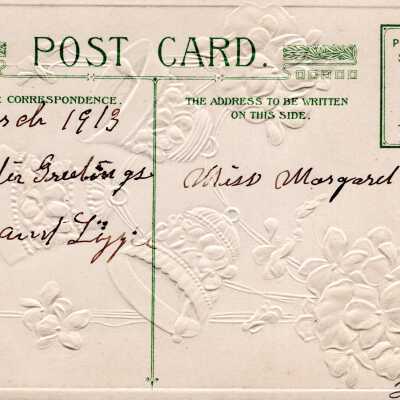 POST CARD.
CORRESPONDENCE.
THE ADDRESS TO BE WRITTEN
ON THIS SIDE.
rch 1913
Greetings
Miss Margaret
aunt Lizzie